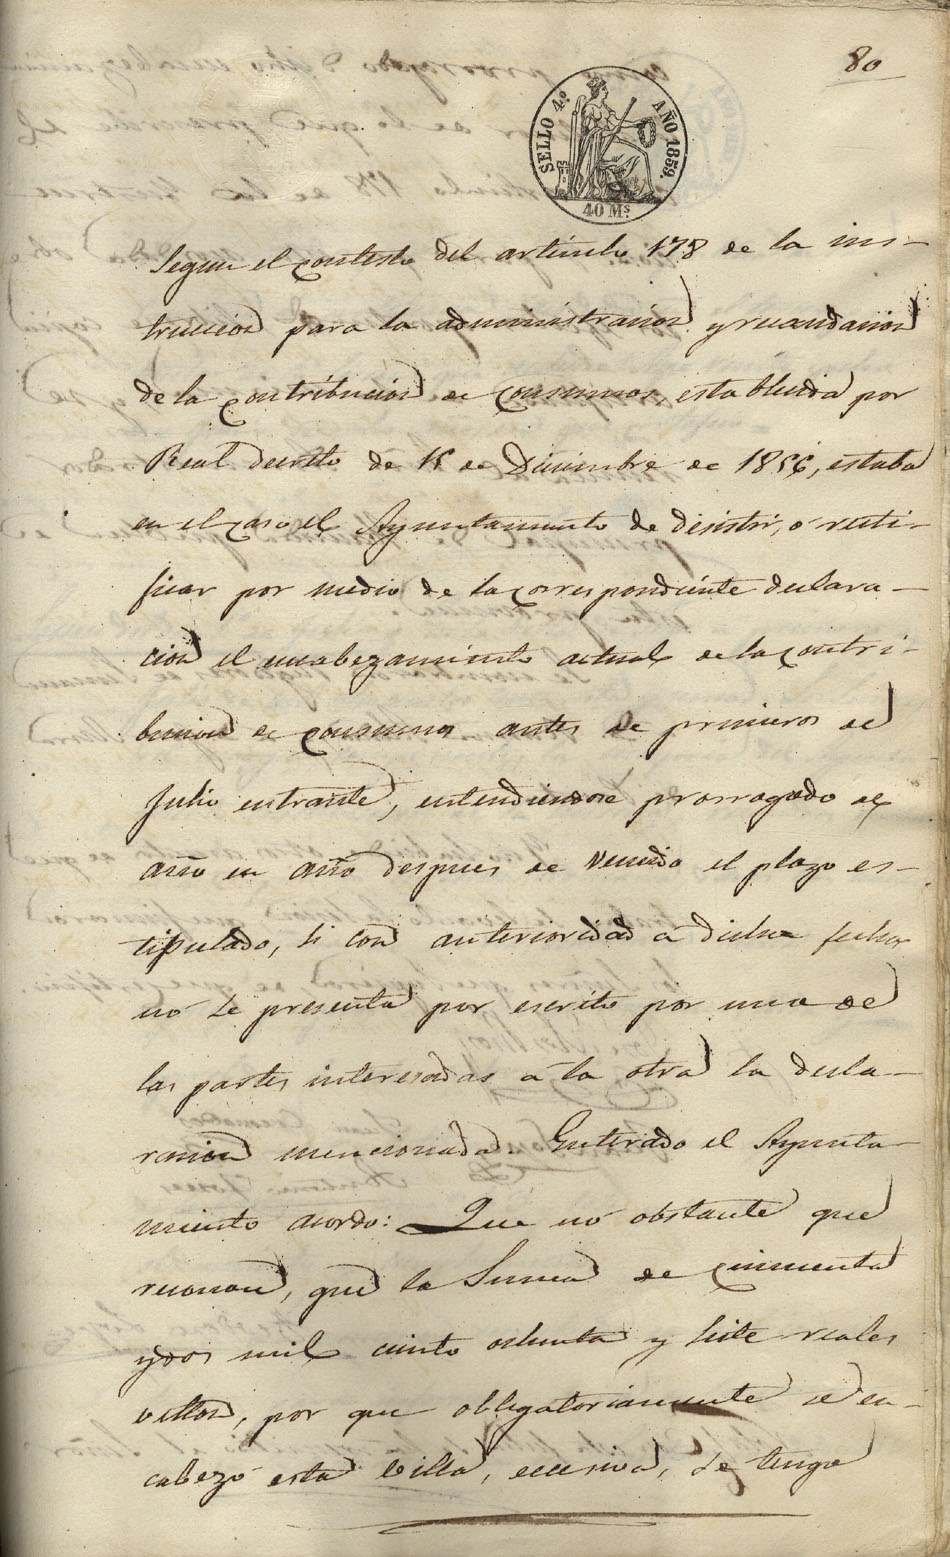 80
SELLO 4.º AÑO 1859
40 M.s
Segun el contesto del articulo 178 de la ins-
truccion para la administracion y recaudacion
de la contribucion de consumos, establecida por
Real decreto de 15 de Diciembre de 1856, estaba
en el caso el Ayuntamiento de desistir, o recti-
ficar por medio de la correspondiente declara-
cion el encabezamiento actual de la contri-
bucion de consumos antes de primeros de
Julio entrante, entendiendose prorrogado de
año en año despues de vencido el plazo es-
tipulado, si con anterioridad á dicha fecha
no se presenta por escrito por una de
las partes interesadas á la otra la decla-
racion mencionada. Enterado el Ayunta-
miento acordo: Que no obstante que
reconoce, que la Suma de cincuenta
y dos mil ciento ochenta y siete reales
vellon, por que obligatoriamente se en-
cabezó esta villa, excesiva, se tenga